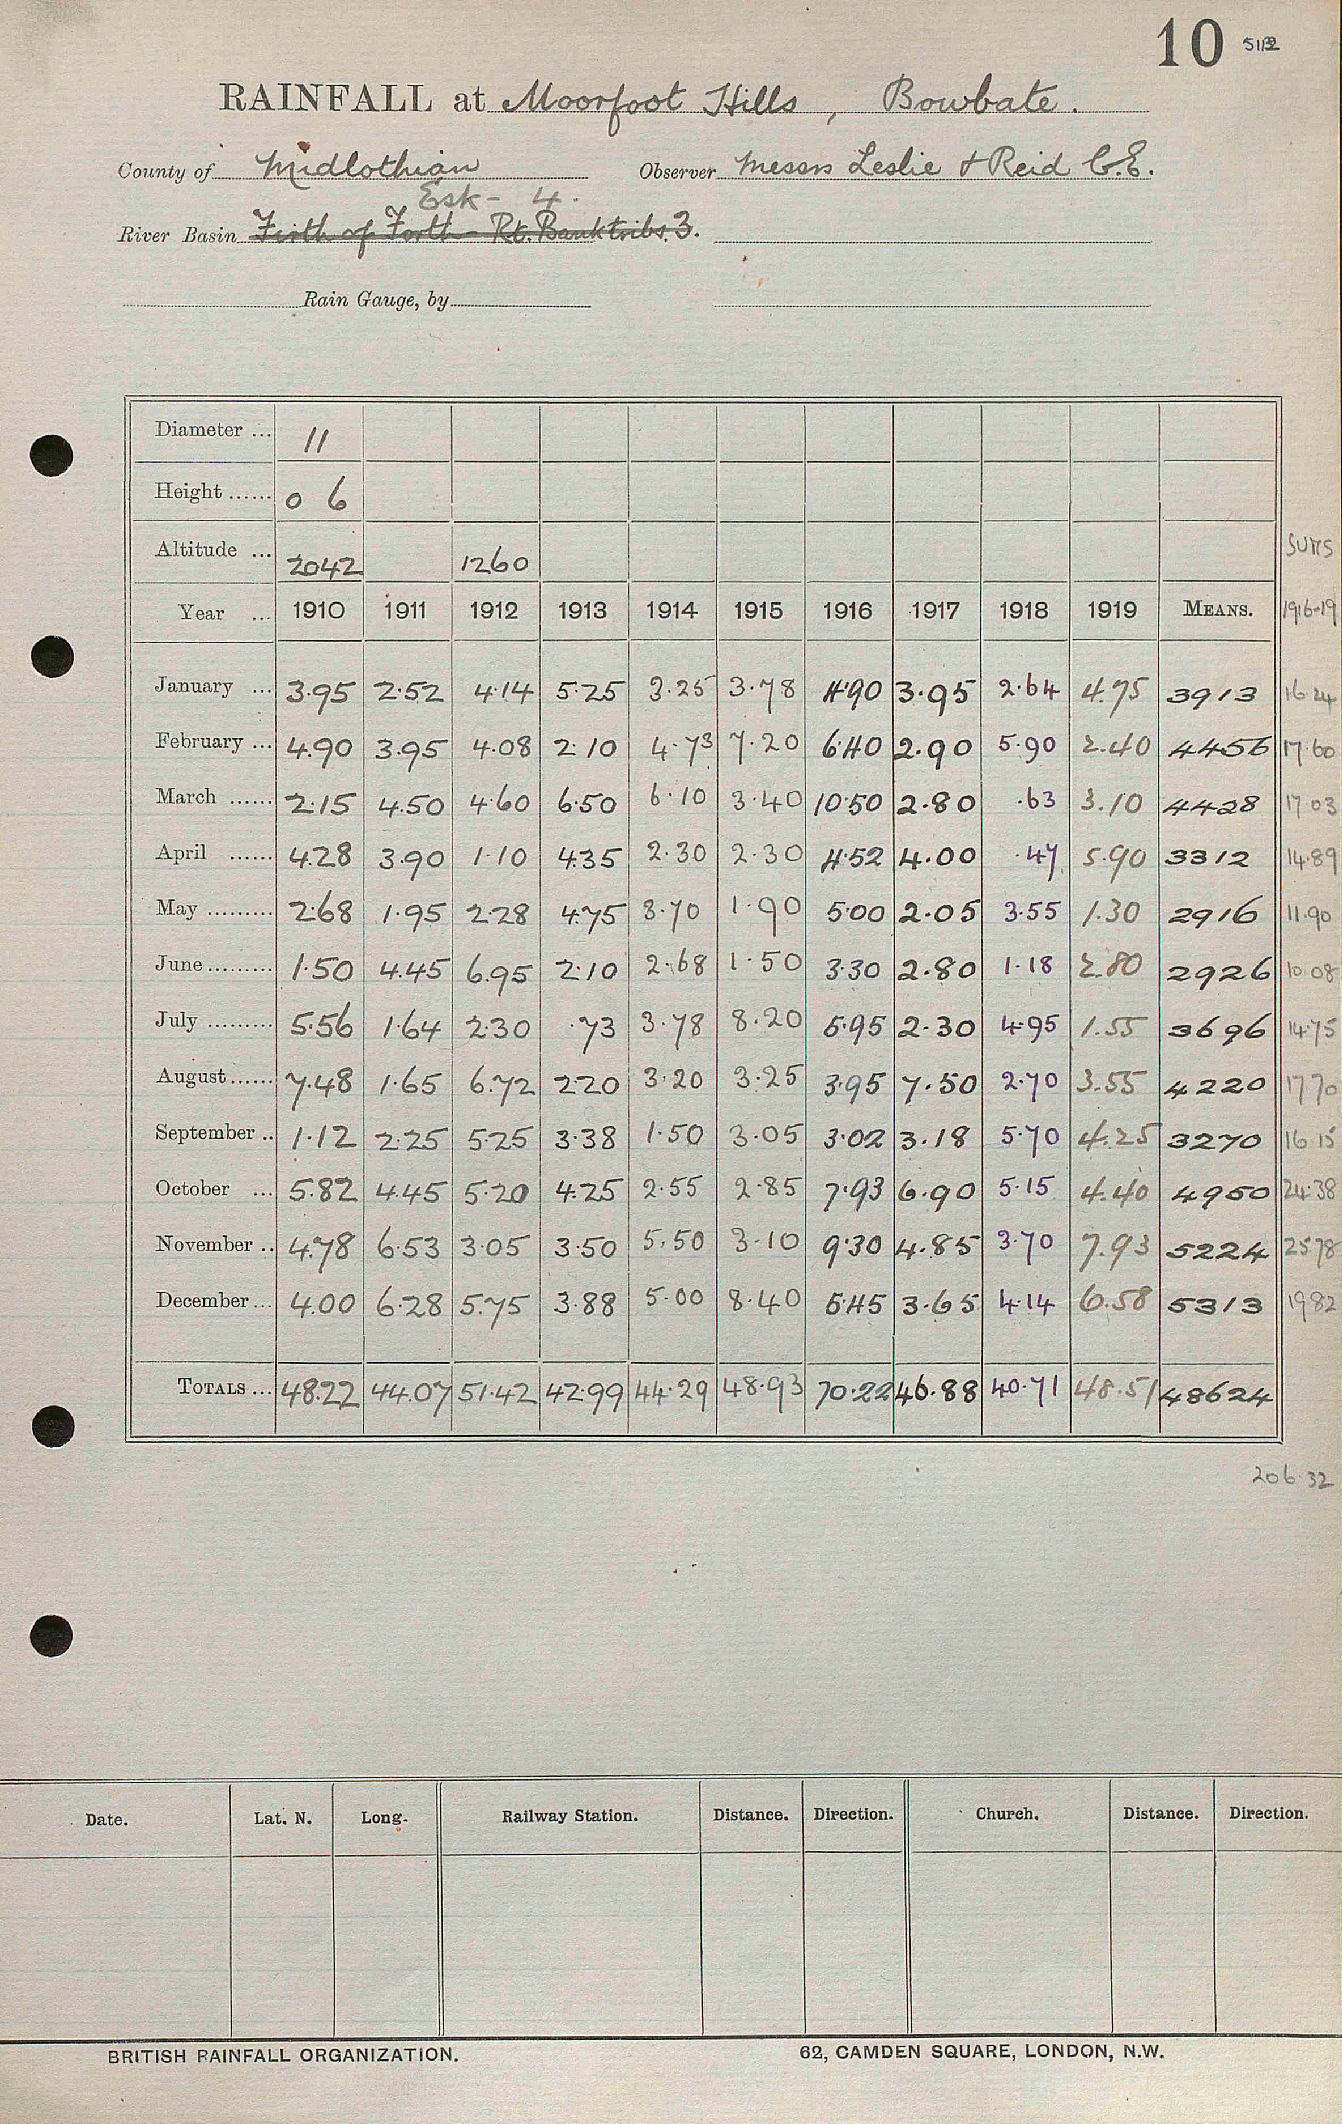 10 5112
RAINFALL at Moorfoot Hills, Bowbate.
County of Midlothian Observer Messrs Leslie & Reid C.E.
Esk - 4.
River Basin Firth of Forth - Rt. Bank tribs. 3.
Rain Gauge, by
Diameter ... 11
Height ...... 0 6
Altitude ... 2042 1260 SUMS
Year ... 1910 1911 1912 1913 1914 1915 1916 1917 1918 1919 MEANS. 1916-19
January ... 3.95 2.52 4.14 5.25 3.25 3.78 4.90 3.95 2.64 4.75 3913 16.24
February ... 4.90 3.95 4.08 2.10 4.73 7.20 6.40 2.90 5.90 2.40 4456 17.60
March ...... 2.15 4.50 4.60 6.50 6.10 3.40 10.50 2.80 .63 3.10 4428 17.03
April ...... 4.28 3.90 1.10 4.35 2.30 2.30 4.52 4.00 .47 5.90 3312 14.89
May ......... 2.68 1.95 2.28 4.75 3.70 1.90 5.00 2.05 3.55 1.30 2916 11.90
June ......... 1.50 4.45 6.95 2.10 2.68 1.50 3.30 2.80 1.18 2.80 2926 10.08
July ......... 5.56 1.64 2.30 .73 3.78 8.20 5.95 2.30 4.95 1.55 3696 14.75
August ...... 7.48 1.65 6.72 2.20 3.20 3.25 3.95 7.50 2.70 3.55 4220 17.70
September .. 1.12 2.25 5.25 3.38 1.50 3.05 3.02 3.18 5.70 4.25 3270 16.15
October ... 5.82 4.45 5.20 4.25 2.55 2.85 7.93 6.90 5.15 4.40 4950 24.38
November .. 4.78 6.53 3.05 3.50 5.50 3.10 9.30 4.85 3.70 7.93 5224 25.78
December ... 4.00 6.28 5.75 3.88 5.00 8.40 5.45 3.65 4.14 6.58 5313 19.82
TOTALS ... 48.22 44.07 51.42 42.99 44.29 48.93 70.22 46.88 40.71 48.51 48624
206.32
Date. Lat. N. Long. Railway Station. Distance. Direction. Church. Distance. Direction.
BRITISH RAINFALL ORGANIZATION. 62, CAMDEN SQUARE, LONDON, N.W.